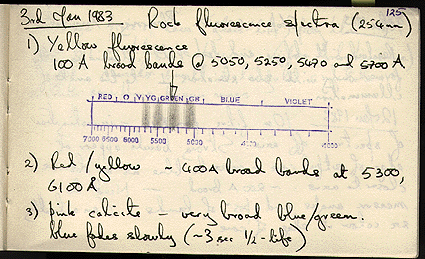 125
3rd Jan 1983 Rock fluorescence spectra (254nm)
1) Yellow fluorescence
100 Å broad bands @ 5050, 5250, 5470 and 5700 Å
RED O Y YG GREEN GB BLUE VIOLET
7000 6500 6000 5500 5000 4500 4000
2) Red/yellow ~ 400Å broad bands at 5300,
6100Å
3) Pink calcite - very broad blue/green.
blue fades slowly (~3 sec ½-life)